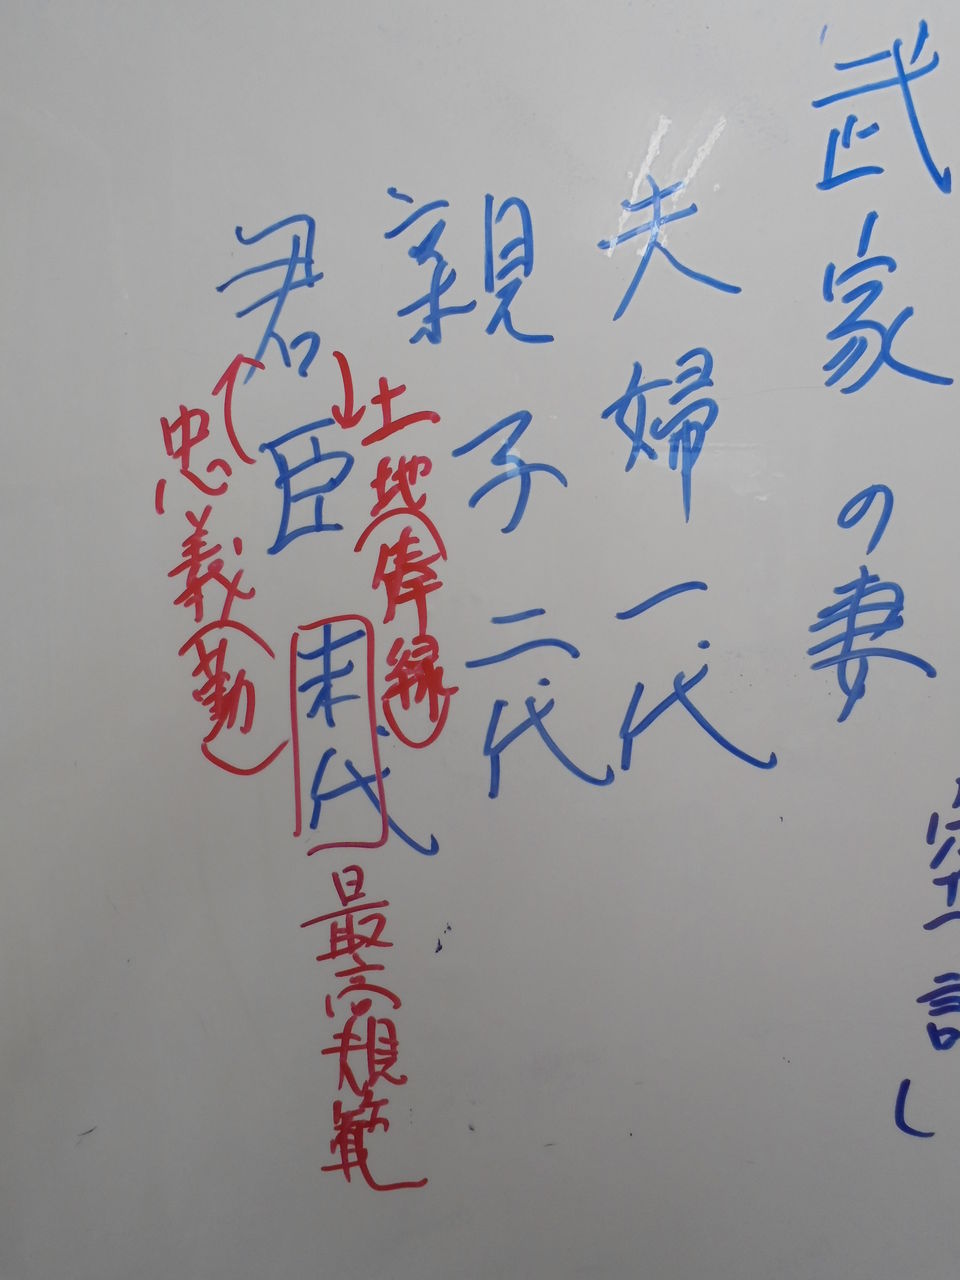 武家の妻
夫婦一代
親子二代
君臣末代
土地(俸禄)
忠義(勤)
最高規範